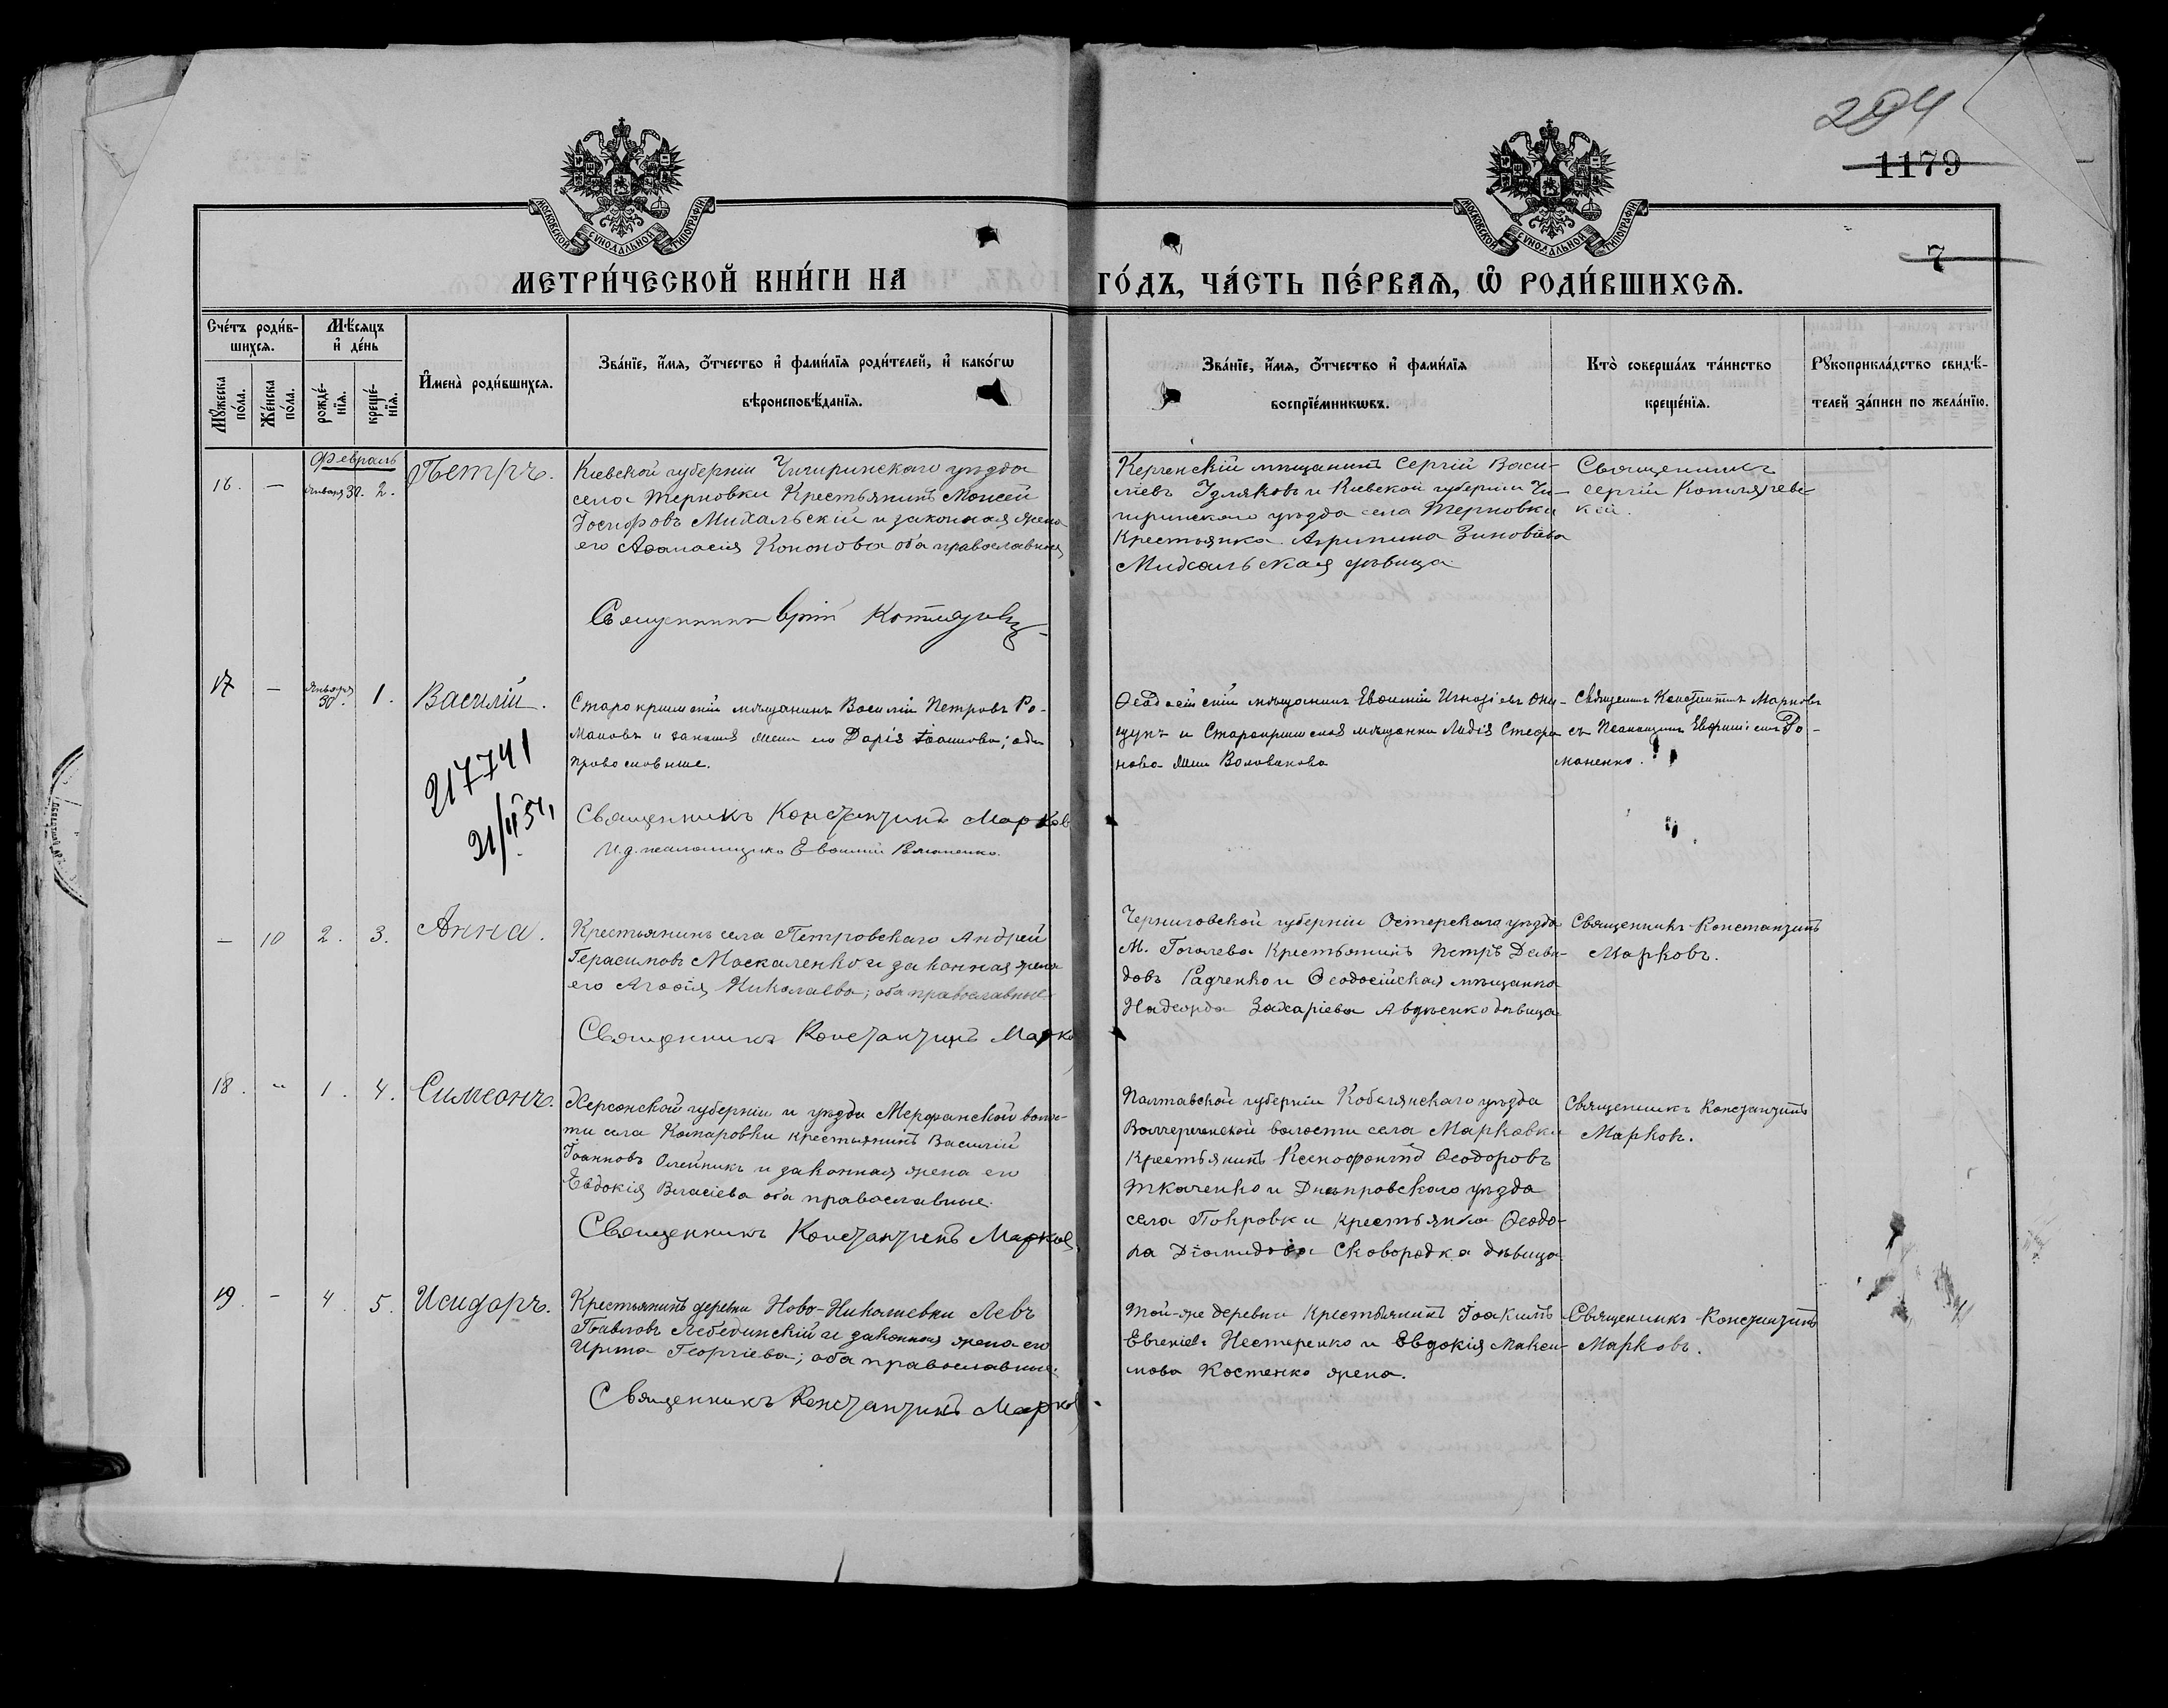 294
1179
7
МОСКОВСКОЙ СУНОДАЛЬНОЙ ТИПОГРАФІИ
МОСКОВСКОЙ СУНОДАЛЬНОЙ ТИПОГРАФІИ
МЕТРИ́ЧЕСКОЙ КНИ́ГИ НА
ГО́ДЪ, ЧА́СТЬ ПЕ́РВАѦ, Ѽ РОДИ́ВШИХСѦ.
Сче́тъ роди́в-
шихсѧ.
Мѣ́сяцъ
и҆ де́нь
Мꙋ́жеска
по́ла.
Же́нска
по́ла.
рожде́-
нїѧ.
креще́-
нїѧ.
И҆мена̀ роди́вшихсѧ.
Зва́нїе, и҆́мѧ, ѻ҆́тчество и҆ фами́лїѧ роди́телей, и҆ како́гѡ
вѣроисповѣ́данїѧ.
Зва́нїе, и҆́мѧ, ѻ҆́тчество и҆ фами́лїѧ
воспрїе́мникѡвъ.
Кто̀ соверша́лъ та́инство
креще́нїѧ.
Рꙋкоприкла́дство свидѣ́-
телей за́писи по жела́нїю.
Февраль
16. — Января 30. 2. Петръ.
Кіевской губерніи Чигиринскаго уѣзда
села Терновки Крестьянинъ Моисей
Іосифовъ Михальскій и законная жена
его Аѳанасія Кононова оба православные
Священникъ Сергій
Керченскій мѣщанинъ Сергій Васи-
ліевъ Изляковъ и Кіевской губерніи Чи-
гиринскаго уѣзда села Терновки
Крестьянка Агрипина Зиновіева
Михальская дѣвица
Священникъ
Сергій Котляревс-
кій.
17 — Января 30. 1. Василій.
217741
21/II 54
Старокрымскій мѣщанинъ Василій Петровъ Ро-
мановъ и законная жена его Дарія Іоаннова; оба
православные.
Священникъ Константинъ Марков
И.д. псаломщика Евѳимій Романенко.
Ѳеодосійскій мѣщанинъ Евѳимій Игнатіевъ Они-
щукъ и Старокрымская мѣщанка Лидія Стефа-
нова жена Воловикова
Священникъ Константинъ Марковъ
съ Псаломщикомъ Евѳиміемъ Ро-
маненко.
— 10 2. 3. Анна.
Крестьянинъ села Петровскаго Андрей
Герасимовъ Москаленко и законная жена
его Агаѳія Николаева; оба православные
Священникъ Константинъ Марков
Черниговской губерніи Остерскаго уѣзда
М. Гоголева Крестьянинъ Петръ Дави-
довъ Радченко и Ѳеодосійская мѣщанка
Надежда Захаріева Авдѣенко дѣвица
Священникъ Константинъ
Марковъ.
18. „ 1. 4. Симеонъ.
Херсонской губерніи и уѣзда волос-
ти села Комаровки крестьянинъ Василій
Іоанновъ Олейникъ и законная жена его
Евдокія Власіева оба православные.
Священникъ Константинъ Марков
Полтавской губерніи Кобелякскаго уѣзда
волости села Марковки
Крестьянинъ Ксенофонтъ Ѳеодоровъ
Ткаченко и Днѣпровскаго уѣзда
села Покровки крестьянка Ѳеодо-
ра Діомидова Сковородка дѣвица
Священникъ Константинъ
Марков.
19. — 4. 5. Исидоръ.
Крестьянинъ деревни Ново-Николаевки Левъ
Павловъ Лебединскій и законная жена его
Ирина Георгіева; оба православные.
Священникъ Константинъ Марков
Той-же деревни крестьянинъ Іоакимъ
Евгеніевъ Нестеренко и Евдокія Макси-
мова Костенко жена.
Священникъ Константинъ
Марковъ.